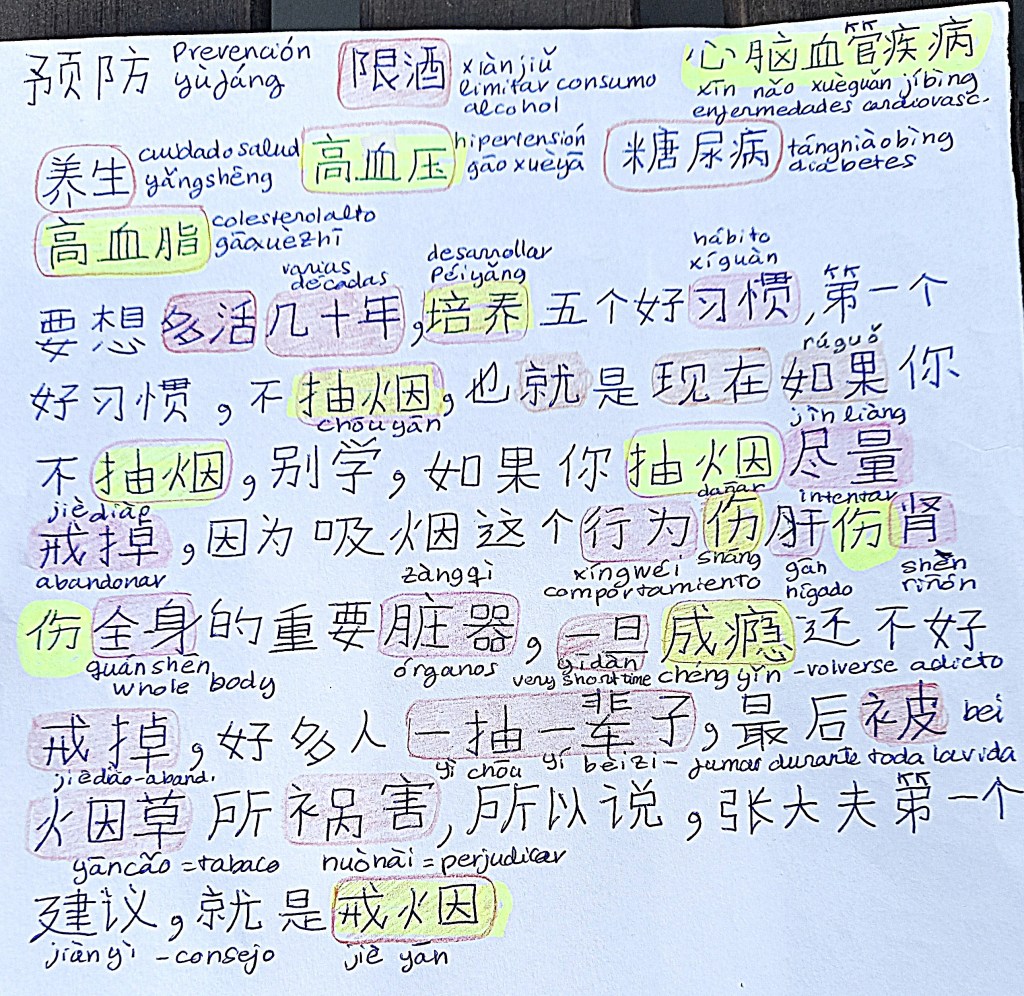 预防 Prevención yùfáng 限酒 xiànjiǔ limitar consumo alcohol 心脑血管疾病 xīn nǎo xuèguǎn jíbìng enfermedades cardiovasc.
养生 cuidado salud yǎngshēng 高血压 hipertensión gāo xuèyā 糖尿病 tángniàobìng diabetes
高血脂 colesterol alto gāoxuèzhī
varias décadas desarrollar péiyǎng hábito xíguàn
要想多活几十年,培养五个好习惯,第一个
rúguǒ
好习惯,不抽烟,也就是现在如果你
chōuyān jìnliàng
不抽烟,别学,如果你抽烟尽量
jièdiào dañar intentar
戒掉,因为吸烟这个行为伤肝伤肾
abandonar zàngqì xíngwéi comportamiento shāng gān hígado shèn riñón
伤全身的重要脏器,一旦成瘾还不好
quánshēn whole body órganos yīdàn very short time chéng yǐn - volverse adicto
戒掉,好多人一抽一辈子,最后被 bei
jièdiào - aband. yì chōu yí bèizi - fumar durante toda la vida
烟草所祸害,所以说,张大夫第一个
yāncǎo = tabaco huòhài = perjudicar
建议,就是戒烟
jiànyì - consejo jiè yān